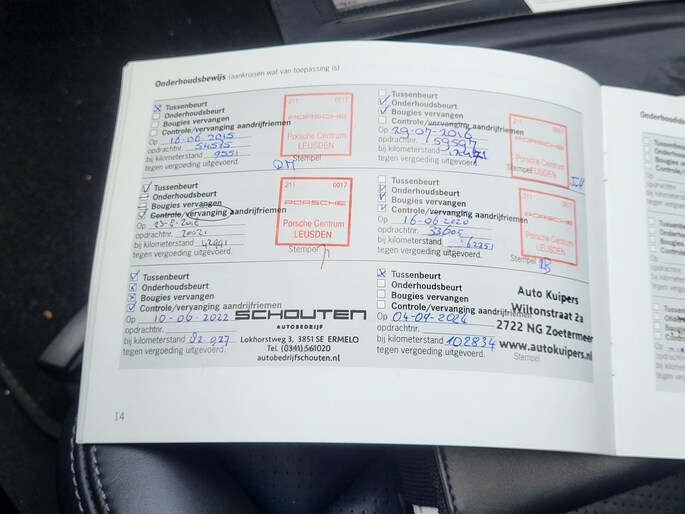 Onderhoudsbewijs (aankruisen wat van toepassing is)
Tussenbeurt
Onderhoudsbeurt
Bougies vervangen
Controle/vervanging aandrijfriemen
Op 16-06 2015
opdrachtnr. 54575
bij kilometerstand 9551
tegen vergoeding uitgevoerd.
211 0017
PORSCHE
Porsche Centrum
LEUSDEN
Stempel
Tussenbeurt
Onderhoudsbeurt
Bougies vervangen
Controle/vervanging aandrijfriemen
Op 29-07-2016
opdrachtnr. 59597
bij kilometerstand
tegen vergoeding uitgevoerd.
211 0017
PORSCHE
Porsche Centrum
LEUSDEN
Stempel
Tussenbeurt
Onderhoudsbeurt
Bougies vervangen
Controle/vervanging aandrijfriemen
Op
opdrachtnr.
bij kilometerstand
tegen vergoeding uitgevoerd.
211 0017
PORSCHE
Porsche Centrum
LEUSDEN
Stempel
Tussenbeurt
Onderhoudsbeurt
Bougies vervangen
Controle/vervanging aandrijfriemen
Op 16-06-2020
opdrachtnr. 33605
bij kilometerstand 63251
tegen vergoeding uitgevoerd.
211 0017
PORSCHE
Porsche Centrum
LEUSDEN
Stempel
Tussenbeurt
Onderhoudsbeurt
Bougies vervangen
Controle/vervanging aandrijfriemen
Op 10-06-2022
opdrachtnr.
bij kilometerstand 82.927
tegen vergoeding uitgevoerd.
SCHOUTEN
AUTOBEDRIJF
Lokhorstweg 3, 3851 SE ERMELO
Tel. (0341) 561020
autobedrijfschouten.nl
Tussenbeurt
Onderhoudsbeurt
Bougies vervangen
Controle/vervanging aandrijfriemen
Op 04-09-2024
opdrachtnr.
bij kilometerstand 102834
tegen vergoeding uitgevoerd.
Auto Kuipers
Wiltonstraat 2a
2722 NG Zoetermeer
www.autokuipers.nl
Stempel
14